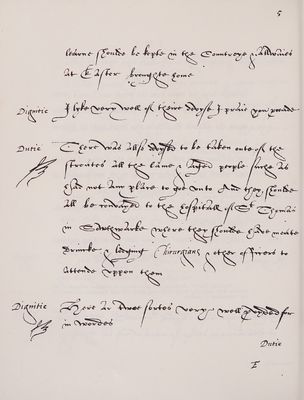 5
learne shoulde be kepte in the Countreye & allwaies
at Easter broughte home
Dignitie I lyke very well of theire devyse I praie you proceade
Dutie There was allso devysed to be taken oute of the
streates all the lame & aged people suche as
had not any place to goe unto And they shoulde
all be conveyed to the hospitall of St Thomas
in Southwarke where they shoulde have meate
drinke & lodging Chirurgians & others of sorte to
attende uppon them
Dignitie Here ar twoe sortes verye well provyded for
in wordes
Dutie
E